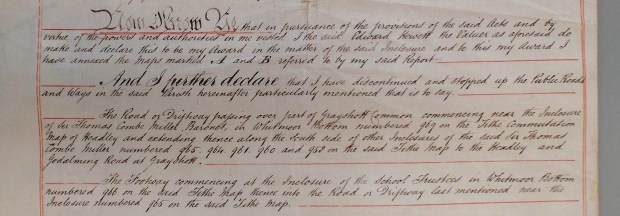 Now Know Ye that in pursuance of the provisions of the said Acts and by
virtue of the powers and authorities in me vested I the said Edward Hewett the Valuer as aforesaid do
make and declare this to be my Award in the matter of the said Inclosure and to this my Award I
have annexed the Maps marked A and B referred to by my said Report
And I further declare that I have discontinued and stopped up the Public Roads
and Ways in the said Parish hereinafter particularly mentioned that is to say.
The Road or Driftway passing over part of Grayshott Common commencing near the Inclosure
of Sir Thomas Combe Miller Baronet, in Whitmoor Bottom numbered 969 on the Tithe Commutation
Map of Headley and extending thence along the South side of other inclosures of the said Sir Thomas
Combe Miller numbered 965. 964. 961. 960 and 952 on the said Tithe Map to the Headley and
Godalming Road at Grayshott.
The Footway commencing at the Inclosure of the School Trustees in Whitmoor Bottom
numbered 986 on the said Tithe Map thence into the Road or Driftway last mentioned near the
Inclosure numbered 965 on the said Tithe Map.